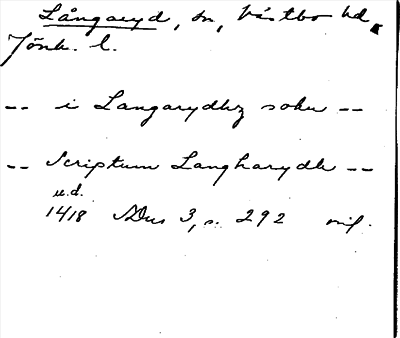 Långaryd, sn, Västbo hd,
Jönk. l.
-- i Langarydhz sokn --
-- Scriptum Langharydh --
u.d.
1418 SDns 3, s. 292 mil.